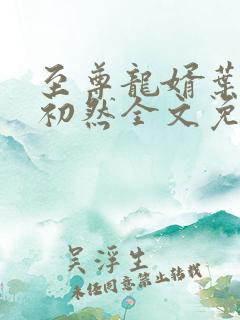 至尊龍婿葉
初然全文免
吴浮生
未经同意禁止转载